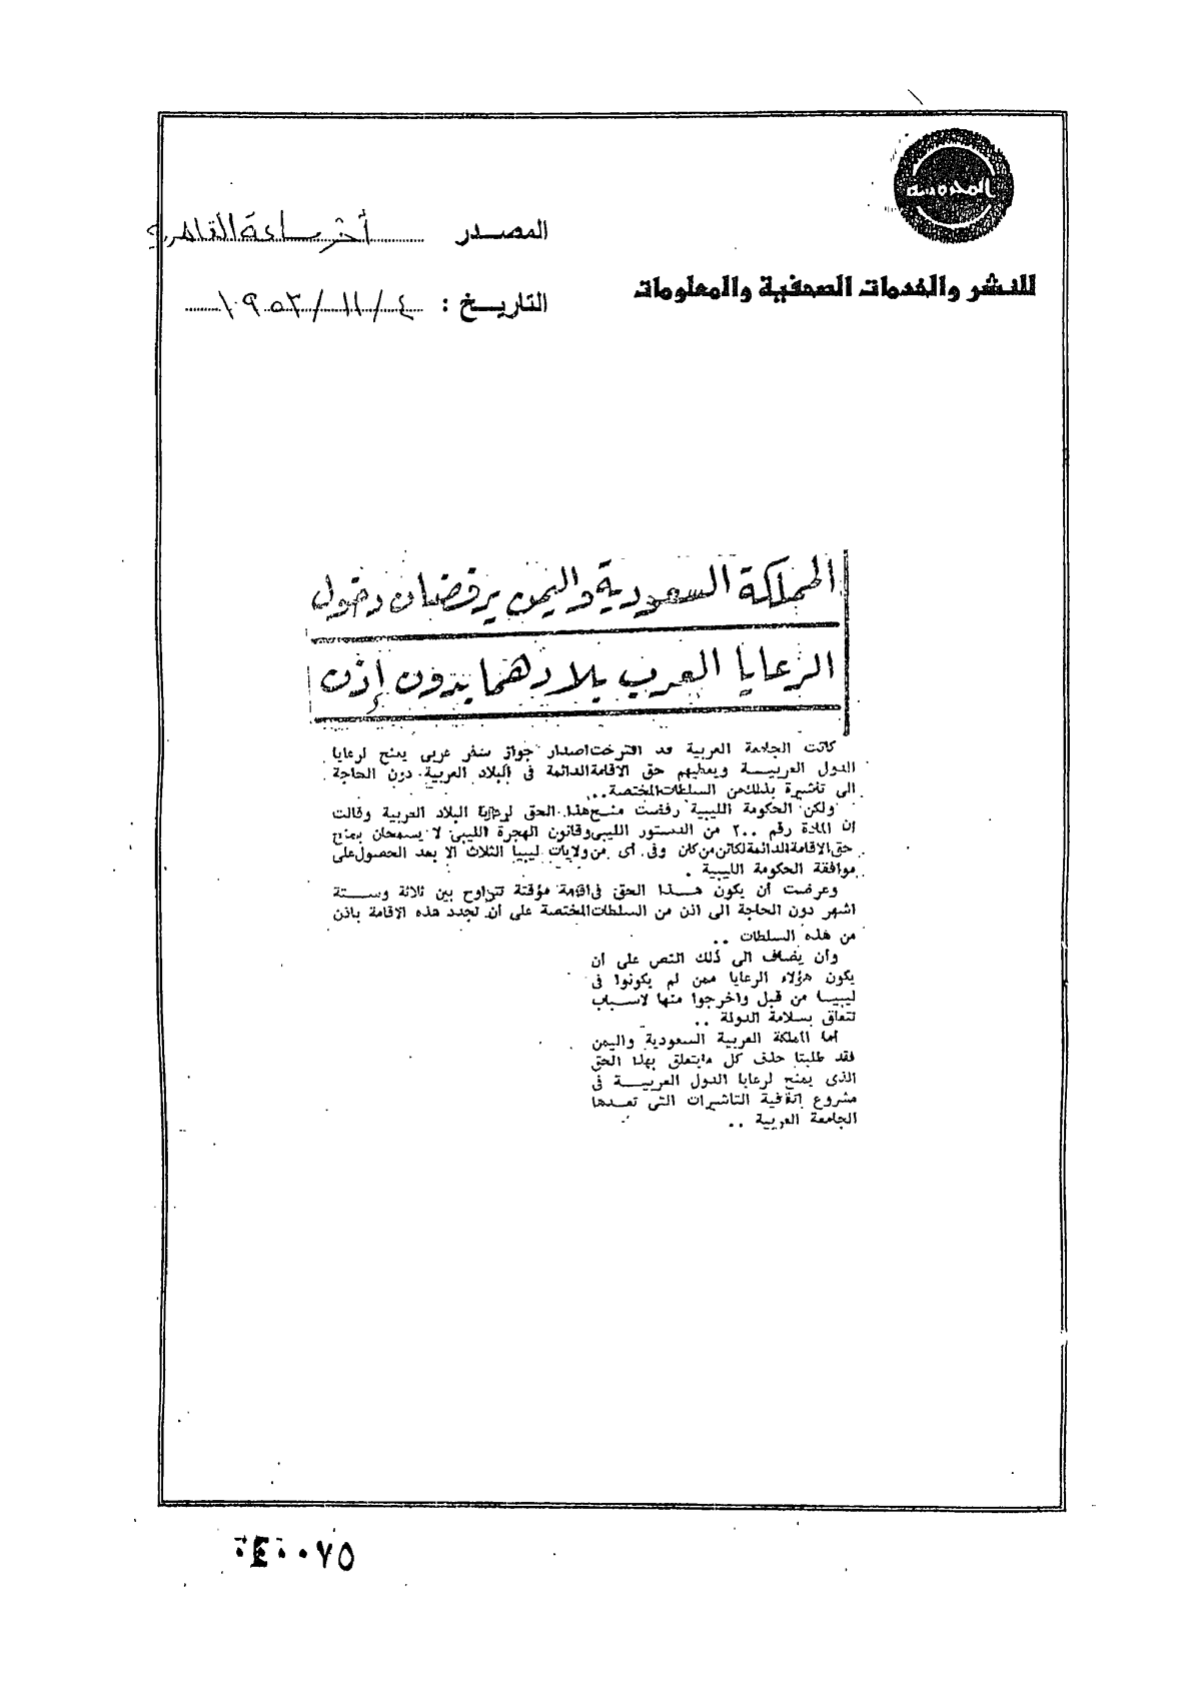 المحروسة
للنشر والخدمات الصحفية والمعلومات
المصدر أخر ساعة القاهرية
التاريخ : ٤/١١/١٩٥٣
المملكة السعودية واليمن يرفضان دخول
الرعايا العرب بلادهما بدون إذن
كانت الجامعة العربية قد اقترحت اصدار جواز سفر عربى يمنح لرعايا
الدول العربيـــة ويعطيهم حق الاقامة الدائمة فى البلاد العربية دون الحاجة
الى تأشيرة بذلك من السلطات المختصة ..
ولكن الحكومة الليبية رفضت منح هذا الحق لرعايا البلاد العربية وقالت
ان المادة رقم ٢٠٠ من الدستور الليبى وقانون الهجرة الليبى لا يسمحان بمنح
حق الاقامة الدائمة لكائن من كان وفى أى من ولايات ليبيا الثلاث الا بعد الحصول على
موافقة الحكومة الليبية .
وعرضت أن يكون هـــذا الحق فى اقامة مؤقتة تتراوح بين ثلاثة وســـتة
اشهر دون الحاجة الى اذن من السلطات المختصة على أن تجدد هذه الاقامة باذن
من هذه السلطات ..
وأن يضاف الى ذلك النص على أن
يكون هؤلاء الرعايا ممن لم يكونوا فى
ليبيـــا من قبل واخرجوا منها لاســـباب
تتعلق بسلامة الدولة ..
أما المملكة العربية السعودية واليمن
فقد طلبتا حذف كل مايتعلق بهذا الحق
الذى يمنح لرعايا الدول العربيـــة فى
مشروع اتفاقية التأشيرات التى تعـــدها
الجامعة العربية ..
٠٤٠٠٧٥